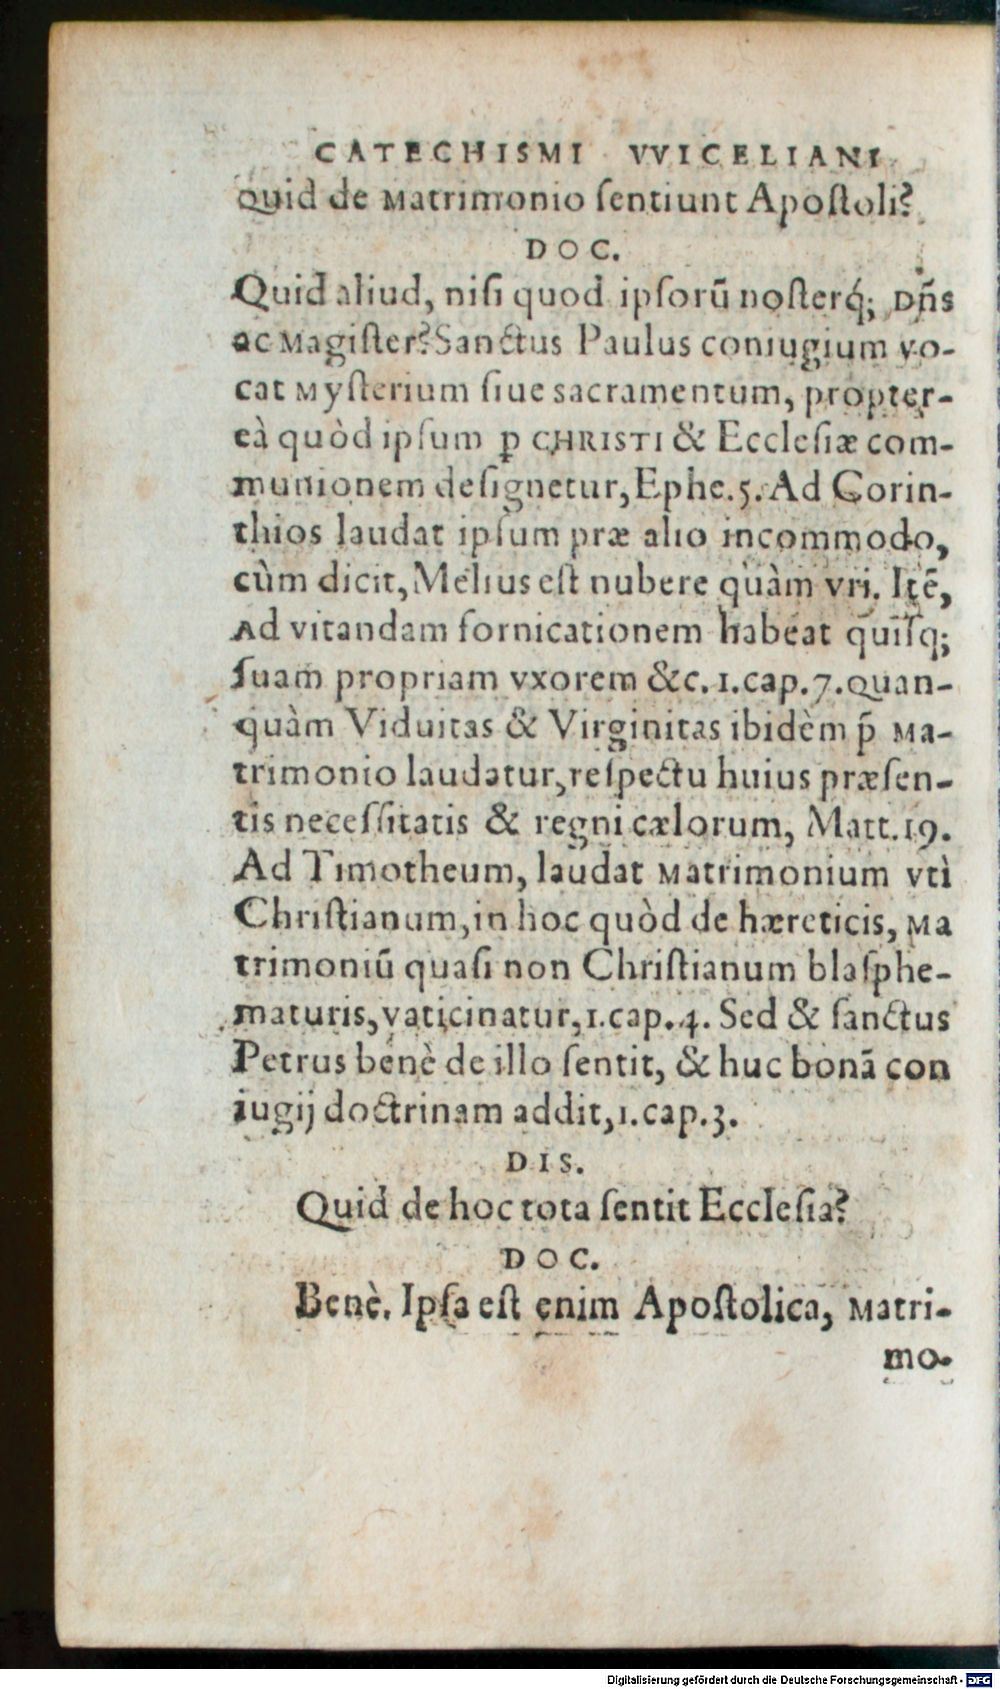 CATECHISMI VVICELIANI
Quid de Matrimonio ſentiunt Apoſtoli?
DOC.
Quid aliud, niſi quod ipſorū noſterq́; Dn̄s
ac Magiſter? Sanctus Paulus coniugium vo-
cat Myſterium ſiue sacramentum, propter-
eà quòd ipſum ꝑ CHRISTI & Eccleſiæ com-
munionem deſignetur, Ephe. 5. Ad Corin-
thios laudat ipſum præ alio incommodo,
cùm dicit, Melius eſt nubere quàm vri. Itē,
Ad vitandam fornicationem habeat quiſq;
ſuam propriam vxorem &c. 1. cap. 7. quan-
quàm Viduitas & Virginitas ibidèm p̄ Ma-
trimonio laudatur, reſpectu huius præſen-
tis neceſſitatis & regni cælorum, Matt. 19.
Ad Timotheum, laudat Matrimonium vtì
Chriſtianum, in hoc quòd de hæreticis, Ma
trimoniū quaſi non Chriſtianum blaſphe-
maturis, vaticinatur, 1. cap. 4. Sed & ſanctus
Petrus benè de illo ſentit, & huc bonā con
iugij doctrinam addit, 1. cap. 3.
DIS.
Quid de hoc tota ſentit Eccleſia?
DOC.
Benè. Ipſa eſt enim Apoſtolica, Matri-
mo-
Digitalisierung gefördert durch die Deutsche Forschungsgemeinschaft - DFG